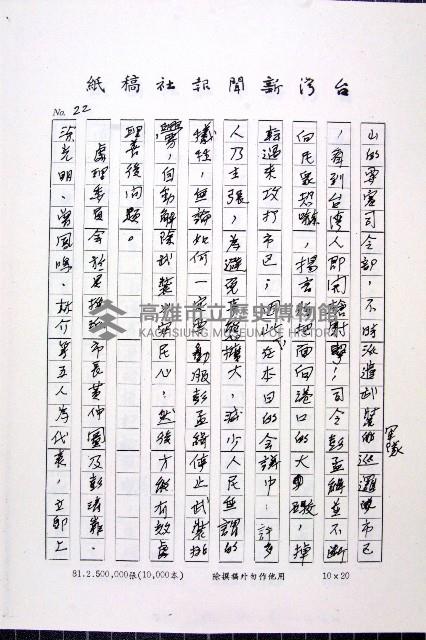 台灣新聞報社稿紙
No. 22
山的要塞司令部，不時派遣武裝的巡邏市區
軍隊
，看到台湾人即開槍射擊；司令彭孟緝並不斷
向民眾恐嚇，揚言砲面向港口的大砲，掉
轉過來攻打市區；因此，在本日的会議中，許多
人乃主張，為避免事態擴大，減少人民無謂的
犧牲，無論如何一定要勸服彭孟緝停止武裝
，自動解除武裝民心；然後才能有效處
理善後問題。
處理委員会於是推派市長黃仲圖及彭清靠、
涂光明、曾鳳鳴、林介等五人為代表，立即上
高雄市立歷史博物館
KAOHSIUNG MUSEUM OF HISTORY
81.2.500,000張(10,000本) 除撰稿外勿作他用 10×20